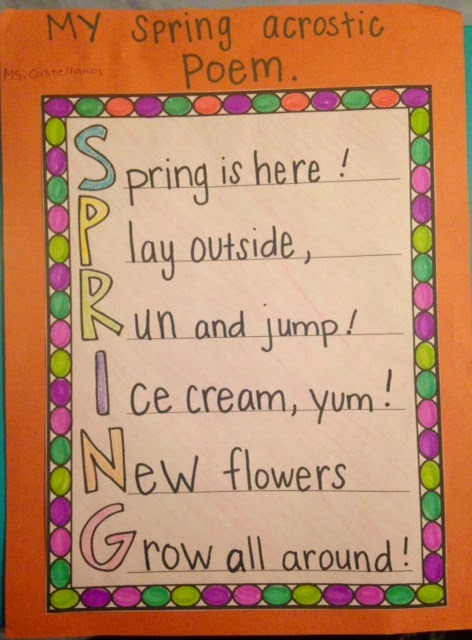 My Spring acrostic
Poem.
Ms. Castellanos
Spring is here!
Play outside,
Run and jump!
Ice cream, yum!
New flowers
Grow all around!